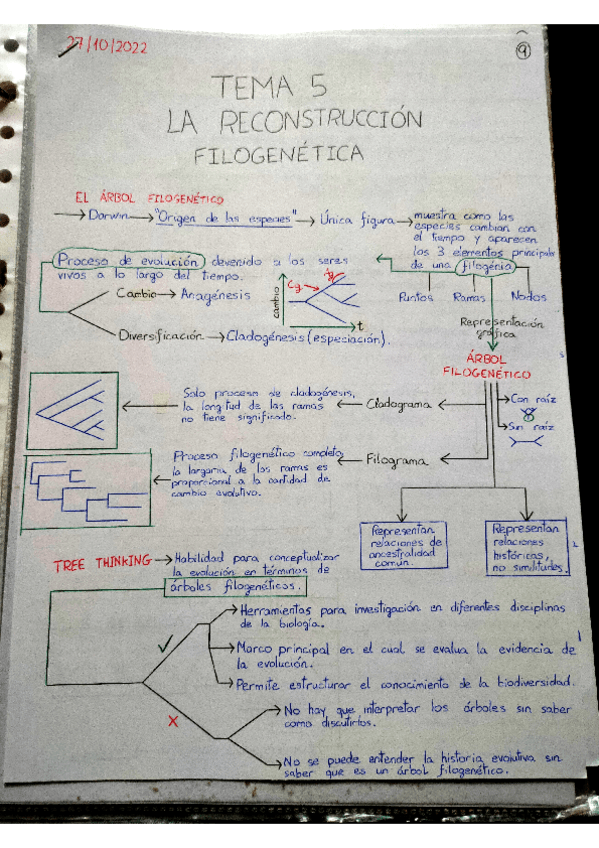 27/10/2022
9
TEMA 5
LA RECONSTRUCCIÓN
FILOGENÉTICA
EL ÁRBOL FILOGENÉTICO
Darwin → "Origen de las especies" → Única figura →
muestra como las
especies cambian con
el tiempo y aparecen
los 3 elementos principales
de una filogenia
Puntos Ramas Nodos
Proceso de evolución devenido a los seres
vivos a lo largo del tiempo.
Cambio → Anagénesis
Diversificación → Cladogénesis (especiación).
cambio
Cg
Ag
t
Representación
gráfica
ÁRBOL
FILOGENÉTICO
Con raíz
Sin raíz
Cladograma
Solo proceso de cladogénesis,
la longitud de las ramas
no tiene significado.
Filograma
Proceso filogenético completo,
la largaria de las ramas es
proporcional a la cantidad de
cambio evolutivo.
Representan
relaciones de
ancestralidad
común.
Representan
relaciones
históricas,
no similitudes.
TREE THINKING → Habilidad para conceptualizar
la evolución en términos de
árboles filogenéticos.
Herramientas para investigación en diferentes disciplinas
de la biología.
Marco principal en el cual se evalua la evidencia de
la evolución.
Permite estructurar el conocimiento de la biodiversidad.
No hay que interpretar los árboles sin saber
como discutirlos.
No se puede entender la historia evolutiva sin
saber que es un árbol filogenético.